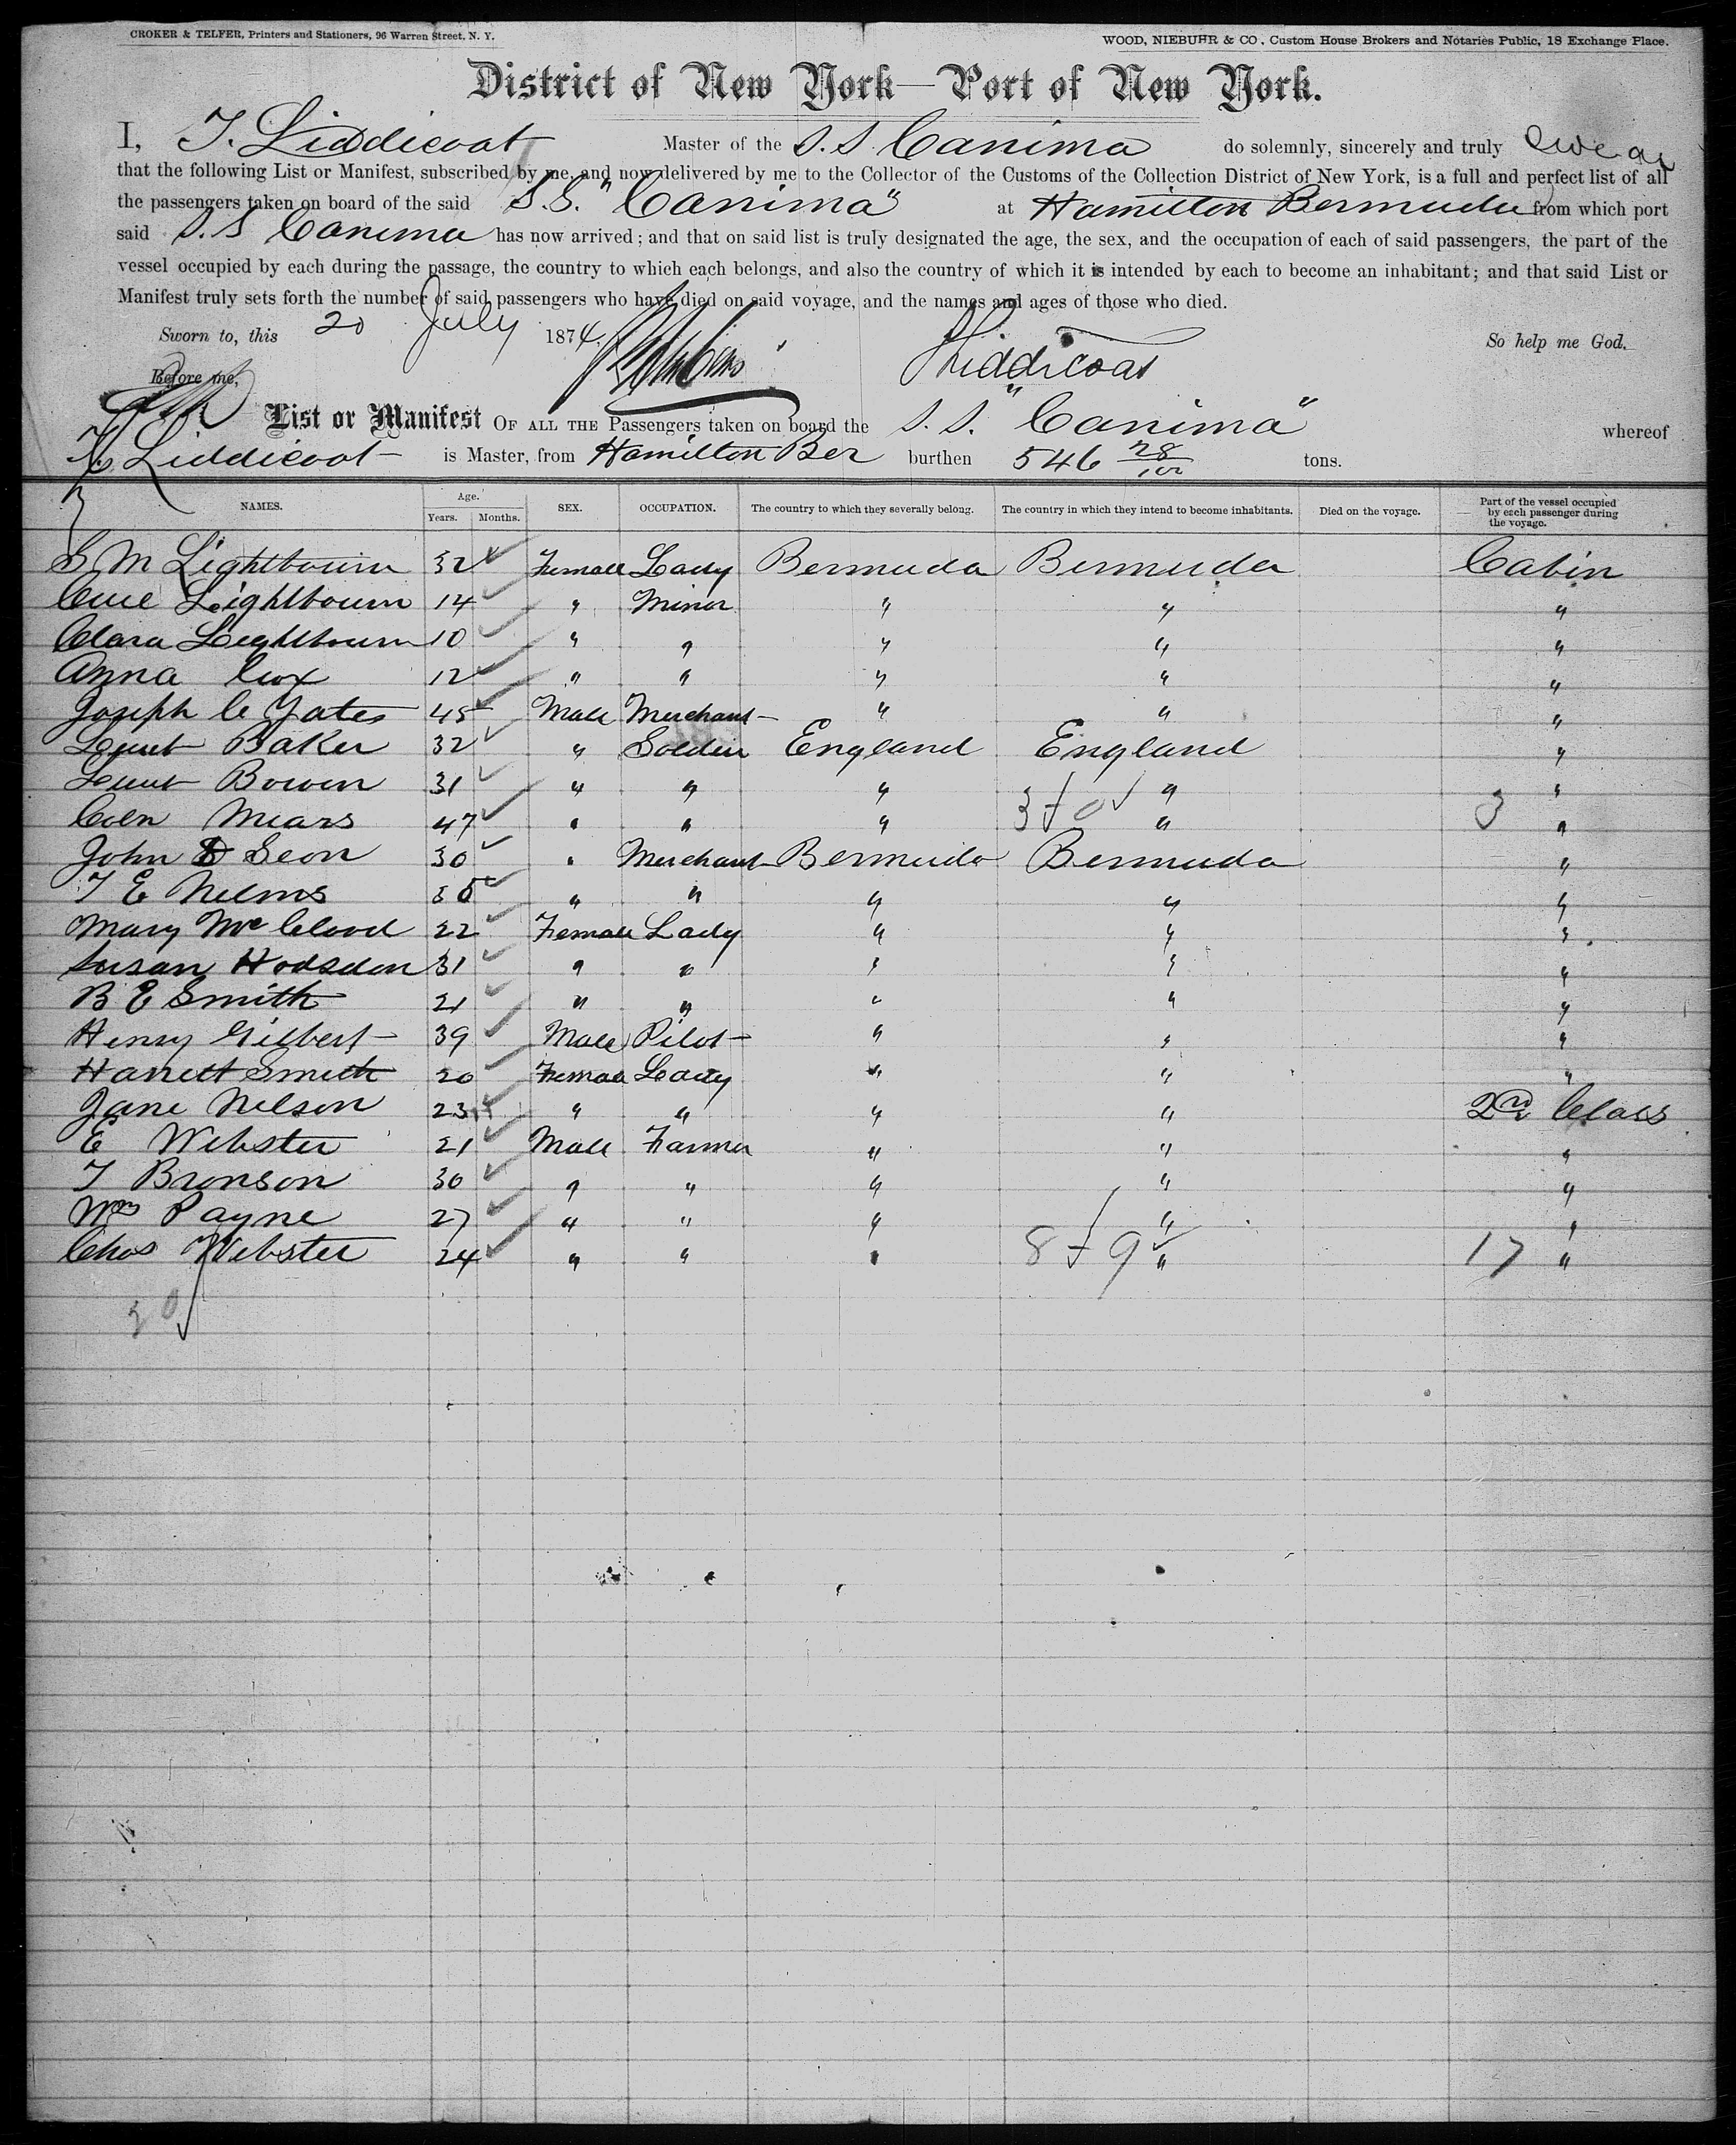 CROKER & TELFER, Printers and Stationers, 96 Warren Street, N. Y.
WOOD, NIEBUHR & CO., Custom House Brokers and Notaries Public, 18 Exchange Place.
District of New York—Port of New York.
I, T. Liddicoat Master of the S.S. Canima do solemnly, sincerely and truly swear
that the following List or Manifest, subscribed by me, and now delivered by me to the Collector of the Customs of the Collection District of New York, is a full and perfect list of all
the passengers taken on board of the said S.S. "Canima" at Hamilton Bermuda from which port
said S.S Canima has now arrived; and that on said list is truly designated the age, the sex, and the occupation of each of said passengers, the part of the
vessel occupied by each during the passage, the country to which each belongs, and also the country of which it is intended by each to become an inhabitant; and that said List or
Manifest truly sets forth the number of said passengers who have died on said voyage, and the names and ages of those who died.
Sworn to, this 20 July 1874. So help me God.
Before me, Liddicoat
List or Manifest OF ALL THE Passengers taken on board the S.S. "Canima" whereof
T. Liddicoat is Master, from Hamilton Ber burthen 546 28/100 tons.
NAMES. Age. Years. Months. SEX. OCCUPATION. The country to which they severally belong. The country in which they intend to become inhabitants. Died on the voyage. Part of the vessel occupied by each passenger during the voyage.
S M Lightbourn 32 Female Lady Bermuda Bermuda Cabin
Lightbourn 14 " Minor " " "
Clara Lightbourn 10 " " " " "
Anna Cox 12 " " " " "
Joseph C Yates 45 Male Merchant " " "
Lieut Baker 32 " Soldier England England "
Lieut Bowen 31 " " " " "
Coln Mears 47 " " " 3 + 0 " 3 "
John Seon 30 " Merchant Bermuda Bermuda "
T E Nelms " " " " "
Mary McCloud 22 Female Lady " " "
Susan Hodsdon 31 " " " " "
B E Smith 21 " " " " "
Henry Gilbert 39 Male Pilot " " "
Harriett Smith 20 Female Lady " " "
Jane Nelson 23 " " " " 2nd Class
E Webster 21 Male Farmer " " "
T Bronson 30 " " " " "
Wm Payne 27 " " " " "
Chas Webster 24 " " " 8 + 9 " 17 "
20